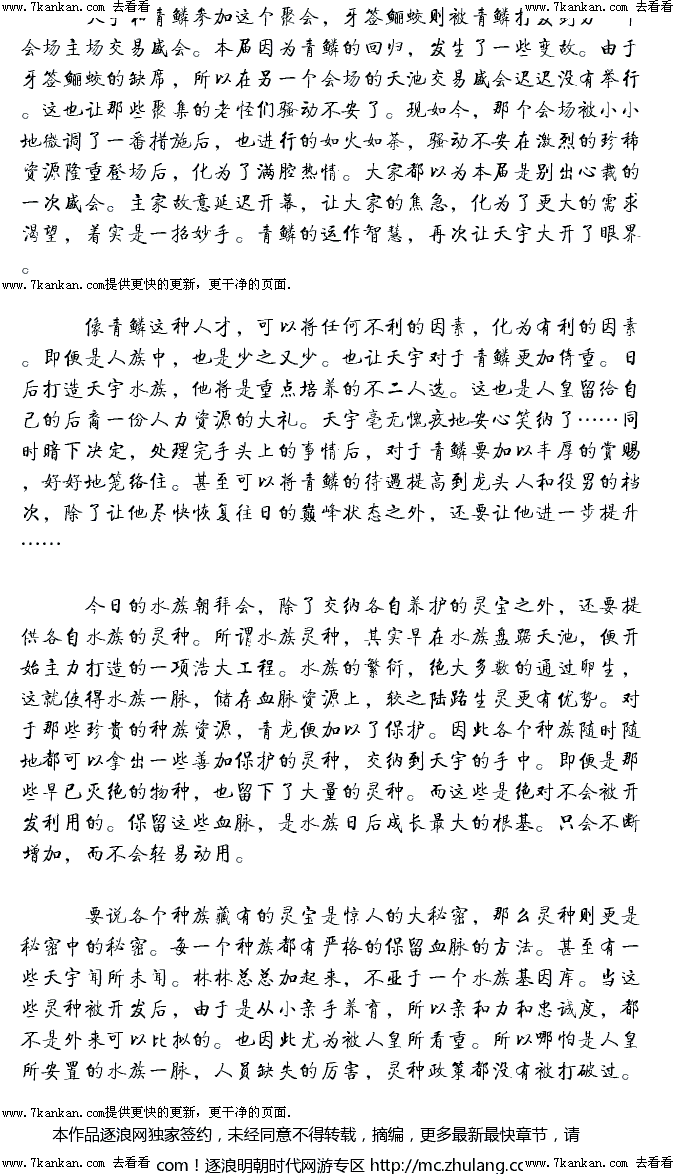 www.7kankan.com 去看看
www.7kankan.com 去看看
天宇和青鳞参加这个聚会，牙签鲡蛟则被青鳞打发到另一个
会场主场交易盛会。本届因为青鳞的回归，发生了一些变故。由于
牙签鲡蛟的缺席，所以在另一个会场的天池交易盛会迟迟没有举行
。这也让那些聚集的老怪们骚动不安了。现如今，那个会场被小小
地微调了一番措施后，也进行的如火如荼，骚动不安在激烈的珍稀
资源隆重登场后，化为了满腔热情。大家都以为本届是别出心裁的
一次盛会。主家故意延迟开幕，让大家的焦急，化为了更大的需求
渴望，着实是一招妙手。青鳞的运作智慧，再次让天宇大开了眼界
。
www.7kankan.com提供更快的更新，更干净的页面.
www.7kankan.com 去看看
像青鳞这种人才，可以将任何不利的因素，化为有利的因素
。即便是人族中，也是少之又少。也让天宇对于青鳞更加倚重。日
后打造天宇水族，他将是重点培养的不二人选。这也是人皇留给自
己的后裔一份人力资源的大礼。天宇毫无愧疚地安心笑纳了……同
时暗下决定，处理完手头上的事情后，对于青鳞要加以丰厚的赏赐
，好好地笼络住。甚至可以将青鳞的待遇提高到龙头人和役男的档
次，除了让他尽快恢复往日的巅峰状态之外，还要让他进一步提升
……
今日的水族朝拜会，除了交纳各自养护的灵宝之外，还要提
供各自水族的灵种。所谓水族灵种，其实早在水族盘踞天池，便开
始主力打造的一项浩大工程。水族的繁衍，绝大多数的通过卵生，
这就使得水族一脉，储存血脉资源上，较之陆路生灵更有优势。对
于那些珍贵的种族资源，青龙便加以了保护。因此各个种族随时随
地都可以拿出一些善加保护的灵种，交纳到天宇的手中。即便是那
些早已灭绝的物种，也留下了大量的灵种。而这些是绝对不会被开
发利用的。保留这些血脉，是水族日后成长最大的根基。只会不断
增加，而不会轻易动用。
要说各个种族藏有的灵宝是惊人的大秘密，那么灵种则更是
秘密中的秘密。每一个种族都有严格的保留血脉的方法。甚至有一
些天宇闻所未闻。林林总总加起来，不亚于一个水族基因库。当这
些灵种被开发后，由于是从小亲手养育，所以亲和力和忠诚度，都
不是外来可以比拟的。也因此尤为被人皇所看重。所以哪怕是人皇
所安置的水族一脉，人员缺失的厉害，灵种政策都没有被打破过。
www.7kankan.com提供更快的更新，更干净的页面.
www.7kankan.com 去看看
本作品逐浪网独家签约，未经同意不得转载，摘编，更多最新最快章节，请
www.7kankan.com 去看看
com！逐浪明朝时代网游专区 http://mc.zhulang.co
www.7kankan.com 去看看